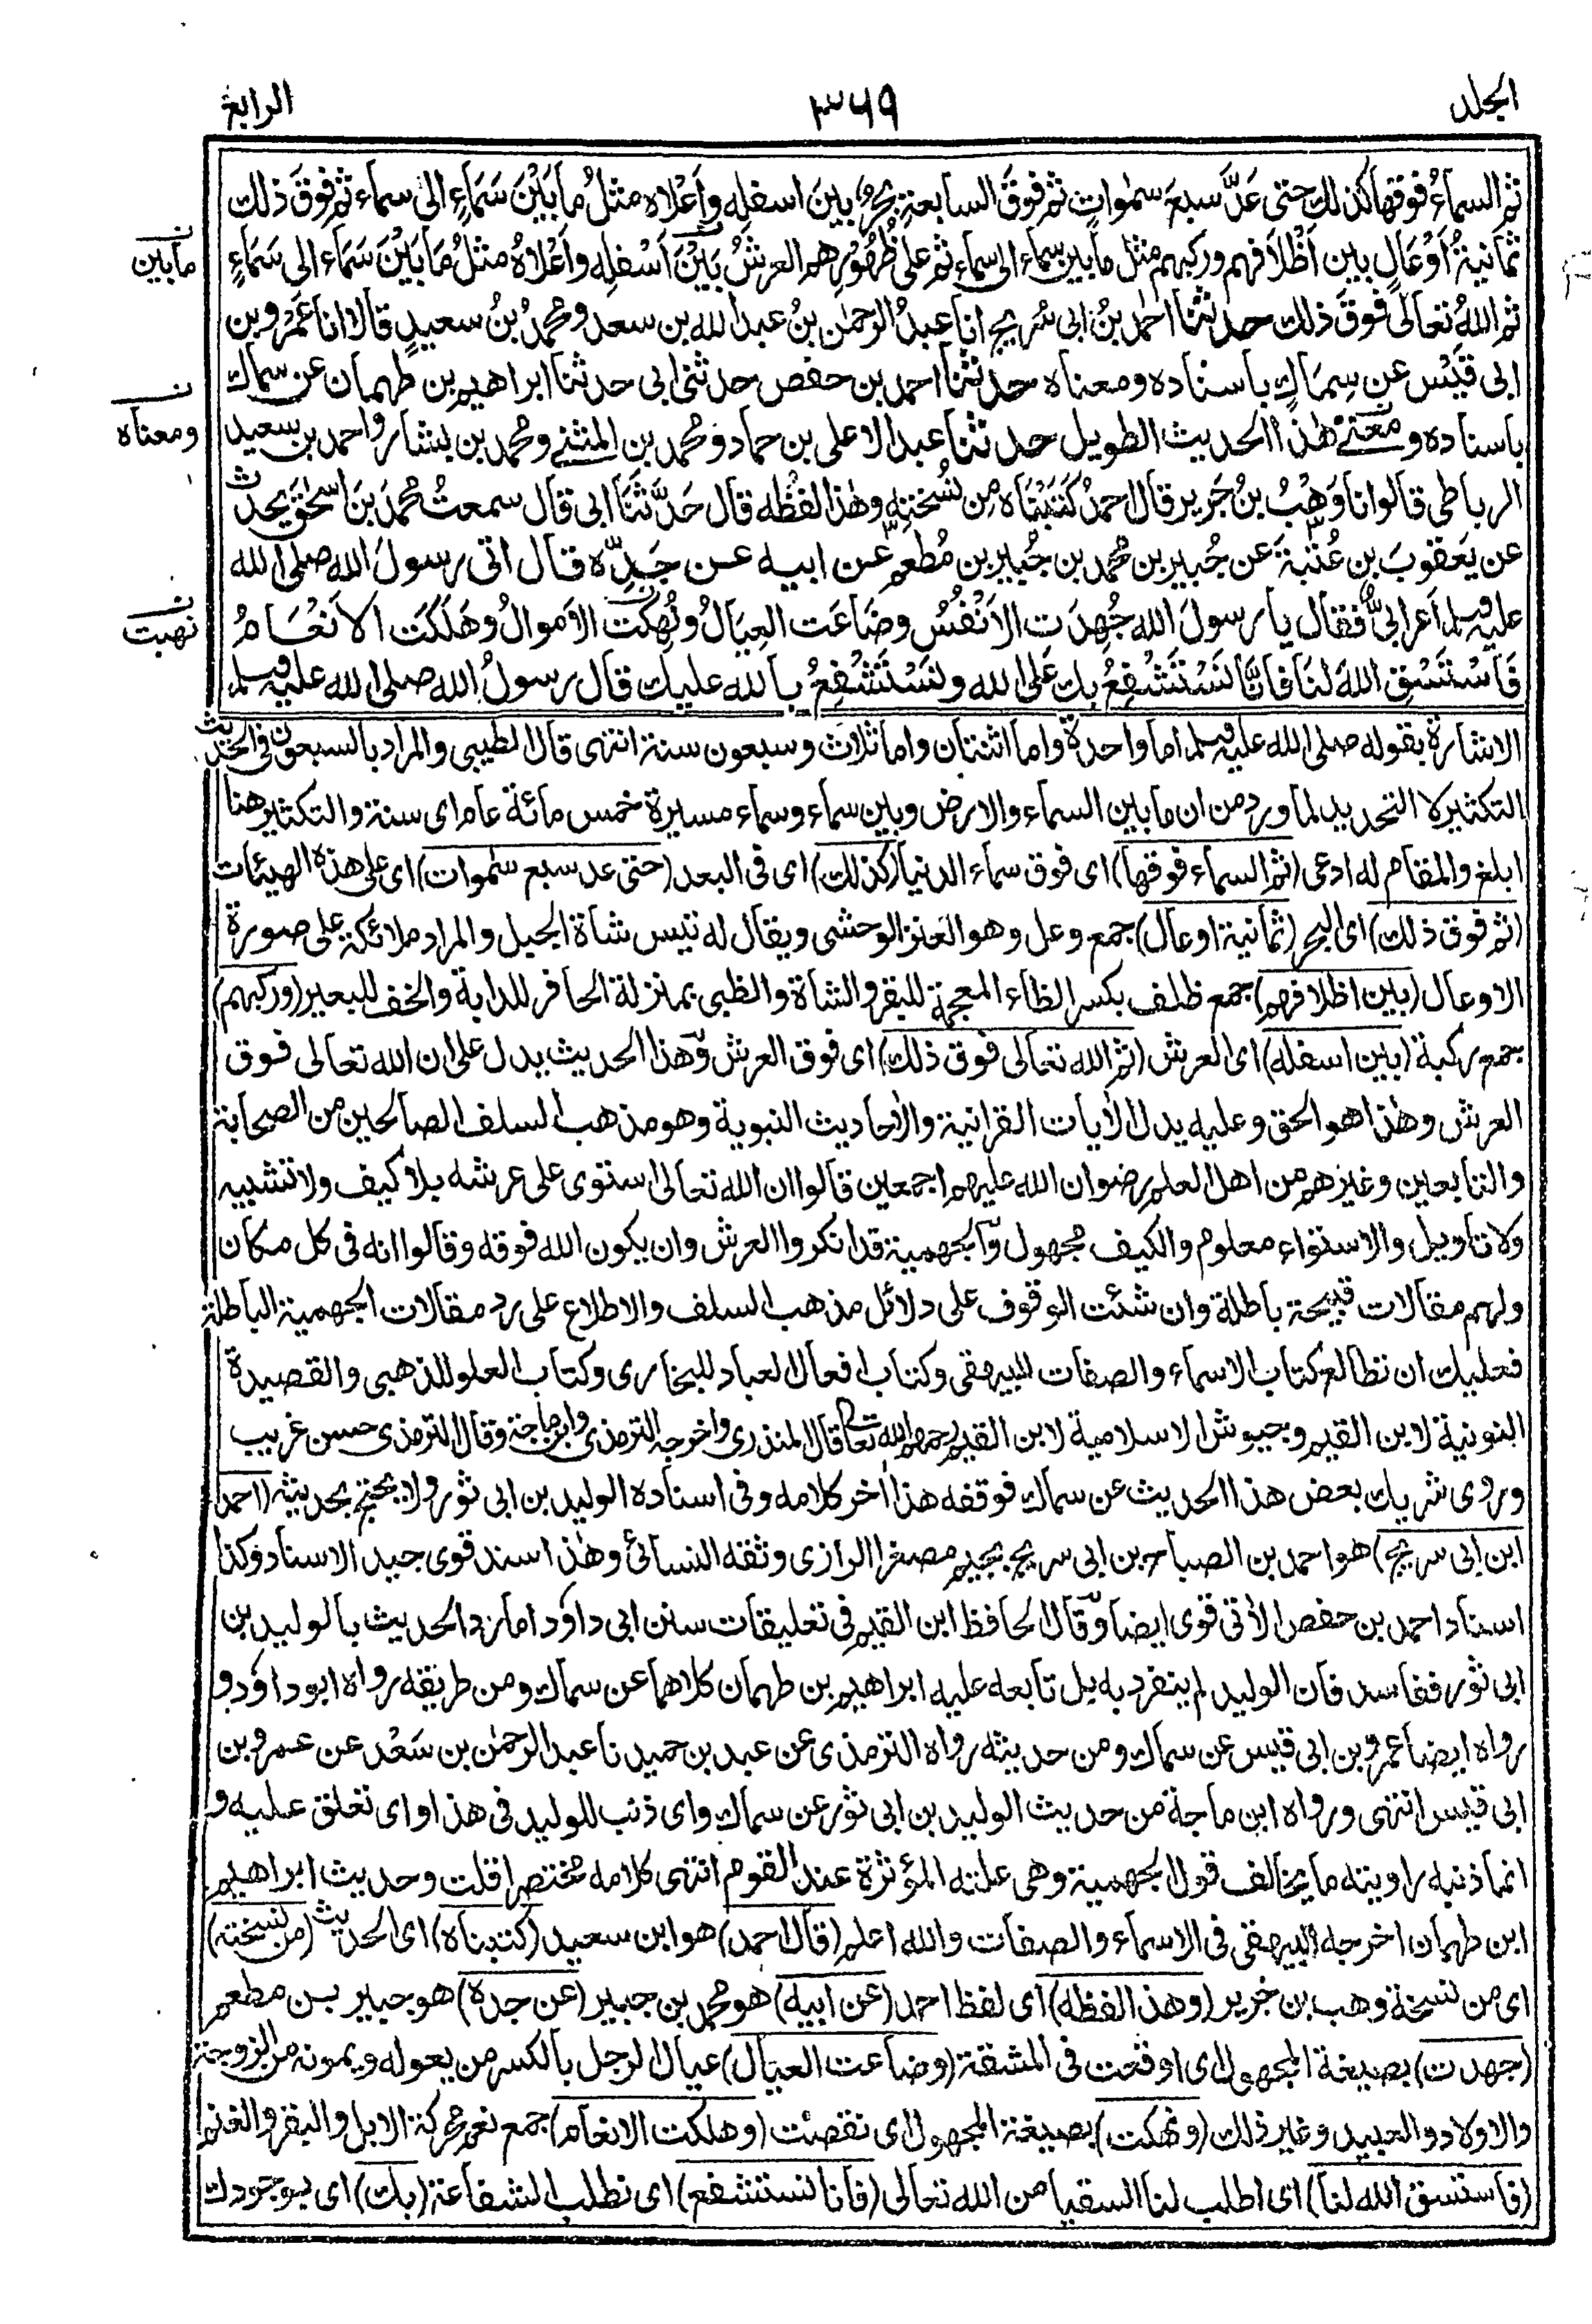 الجلد
٣٦٩
الرابع
ثم السماءُ فوقها كذلك حتى عَدَّ سبعَ سمٰواتٍ ثم فوقَ السابعةِ بحرٌ بينَ اسفلِه وأَعْلاه مثلُ ما بَيْنَ سَمَاءٍ الى سماء ثم فوقَ ذلك
ثمانيةُ أَوْعَالٍ بين أَظْلافهم ورُكبهم مثل ما بين سماء الى سماء ثم على ظُهُورِهم العرشُ بَيْنَ أَسْفلِه وأَعْلاهُ مثلُ مَا بَيْنَ سَمَاء الى سَمَاءٍ
مابين
ثم اللهُ تعالى فوقَ ذلك حدثنا احمدُ بنُ ابى سُريج انا عبدُ الرحمٰن بنُ عبد الله بن سعد ومحمدُ بنُ سعيدٍ قالا انا عَمْرو بن
ابى قَيْس عن سِمَاكٍ باسناده ومعناه حدثنا احمد بن حفص حدثنى ابى حدثنا ابراهيم بن طهمان عن سماك
باسناده ومعنى هٰذا الحديث الطويل حدثنا عبد الاعلى بن حماد ومحمد بن المثنى ومحمد بن بشار واحمد بن سعيد
ومعناه
الرباطى قالوا نا وَهْبُ بنُ جَرير قال احمدُ كَتَبْنَاه مِن نُسْخَتِه وهٰذا لفظُه قال حَدَّثنَا ابى قال سمعتُ محمدَ بنَ اسحٰقَ يحدث
عن يَعقوبَ بنِ عُتْبةَ عن جُبير بن محمد بن جُبير بن مُطعِم عن ابيه عن جَدِّه قال اتى رسولَ الله صلى الله
عليه وسلم أَعرابىٌّ فقال يا رسولَ الله جُهِدَت الاَنْفُسُ وضَاعَت العِيَالُ ونُهِكَت الاَموالُ وهَلَكَت الاَنْعَامُ
نهبت
فَاسْتَسْقِ اللهَ لنَا فانَّا نَسْتَشْفِعُ بك عَلى الله ونَسْتَشْفِعُ بالله عليك قال رسولُ الله صلى الله عليه وسلم
الاشارة بقوله صلى الله عليه وسلم اما واحدة واما اثنتان واما ثلاث وسبعون سنة انتهى قال الطيبى والمراد بالسبعون فى الحديث
التكثير لا التحديد لما ورد من ان ما بين السماء والارض وبين سماء وسماء مسيرة خمس مائة عام اى سنة والتكثير هنا
ابلغ والمقام له ادعى (ثم السماء فوقها) اى فوق سماء الدنيا (كذلك) اى فى البعد (حتى عد سبع سمٰوات) اى على هذه الهيئات
(ثم فوق ذلك) اى البحر (ثمانية اوعال) جمع وعل وهو العنز الوحشى ويقال له تيس شاة الجبل والمراد ملائكة على صورة
الاوعال (بين اظلافهم) جمع ظلف بكسر الظاء المعجمة للبقر والشاة والظبى بمنزلة الحافر للدابة والخف للبعير (وركبهم)
جمع ركبة (بين اسفله) اى العرش (ثم الله تعالى فوق ذلك) اى فوق العرش وهذا الحديث يدل على ان الله تعالى فوق
العرش وهٰذا هو الحق وعليه يدل الأيات القرانية والأحاديث النبوية وهو مذهب السلف الصالحين من الصحابة
والتابعين وغيرهم من اهل العلم رضوان الله عليهم اجمعين قالوا ان الله تعالى استوى على عرشه بلا كيف ولا تشبيه
ولا تاويل والاستواء معلوم والكيف مجهول والجهمية قد انكروا العرش وان يكون الله فوقه وقالوا انه فى كل مكان
ولهم مقالات قبيحة باطلة وان شئت الوقوف على دلائل مذهب السلف والاطلاع على رد مقالات الجهمية الباطلة
فعليك ان تطالع كتاب الاسماء والصفات للبيهقى وكتاب افعال العباد للبخارى وكتاب العلو للذهبى والقصيدة
النونية لابن القيم وجيوش الاسلامية لابن القيم رحمهم الله تعالى قال المنذرى واخرجه الترمذى وابن ماجة وقال الترمذى حسن غريب
وروى شريك بعض هذا الحديث عن سماك فوقفه هذا أخر كلامه وفى اسناده الوليد بن ابى ثور ولا يحتج بحديثه (احمد
ابن ابى سريج) هو احمد بن الصباح بن ابى سريج بجيم مصغرا الرازى وثقه النسائى وهٰذا سند قوى جيد الاسناد وكذا
اسناد احمد بن حفص الأتى قوى ايضا وقال الحافظ ابن القيم فى تعليقات سنن ابى داؤد اما رد الحديث بالوليد بن
ابى ثور ففاسد فان الوليد لم ينفرد به بل تابعه عليه ابراهيم بن طهمان كلاهما عن سماك ومن طريقه رواه ابو داؤد و
رواه ايضا عمرو بن ابى قيس عن سماك ومن حديثه رواه الترمذى عن عبد بن حميد نا عبد الرحمٰن بن سَعْد عن عمرو بن
ابى قيس انتهى ورواه ابن ماجة من حديث الوليد بن ابى ثور عن سماك واى ذنب للوليد فى هذا واى تعلق عليه و
انما ذنبه روايته ما يخالف قول الجهمية وهى علته المؤثرة عند القوم انتهى كلامه مختصرا قلت وحديث ابراهيم
ابن طهمان اخرجه البيهقى فى الاسماء والصفات والله اعلم (قال احمد) هو ابن سعيد (كتبناه) اى الحديث (من نسخته)
اى من نسخة وهب بن جرير (وهذا لفظه) اى لفظ احمد (عن ابيه) هو محمد بن جبير (عن جده) هو جبير بن مطعم
(جهدت) بصيغة المجهول اى اوقعت فى المشقة (وضاعت العيال) عيال الرجل بالكسر من يعوله ويمونه من الزوجة
والاولاد والعبيد وغير ذلك (ونهكت) بصيغة المجهول اى نقصت (وهلكت الانعام) جمع نعم محركة الابل والبقر والغنم
(فاستسق الله لنا) اى اطلب لنا السقيا من الله تعالى (فانا نستشفع) اى نطلب الشفاعة (بك) اى بوجودك